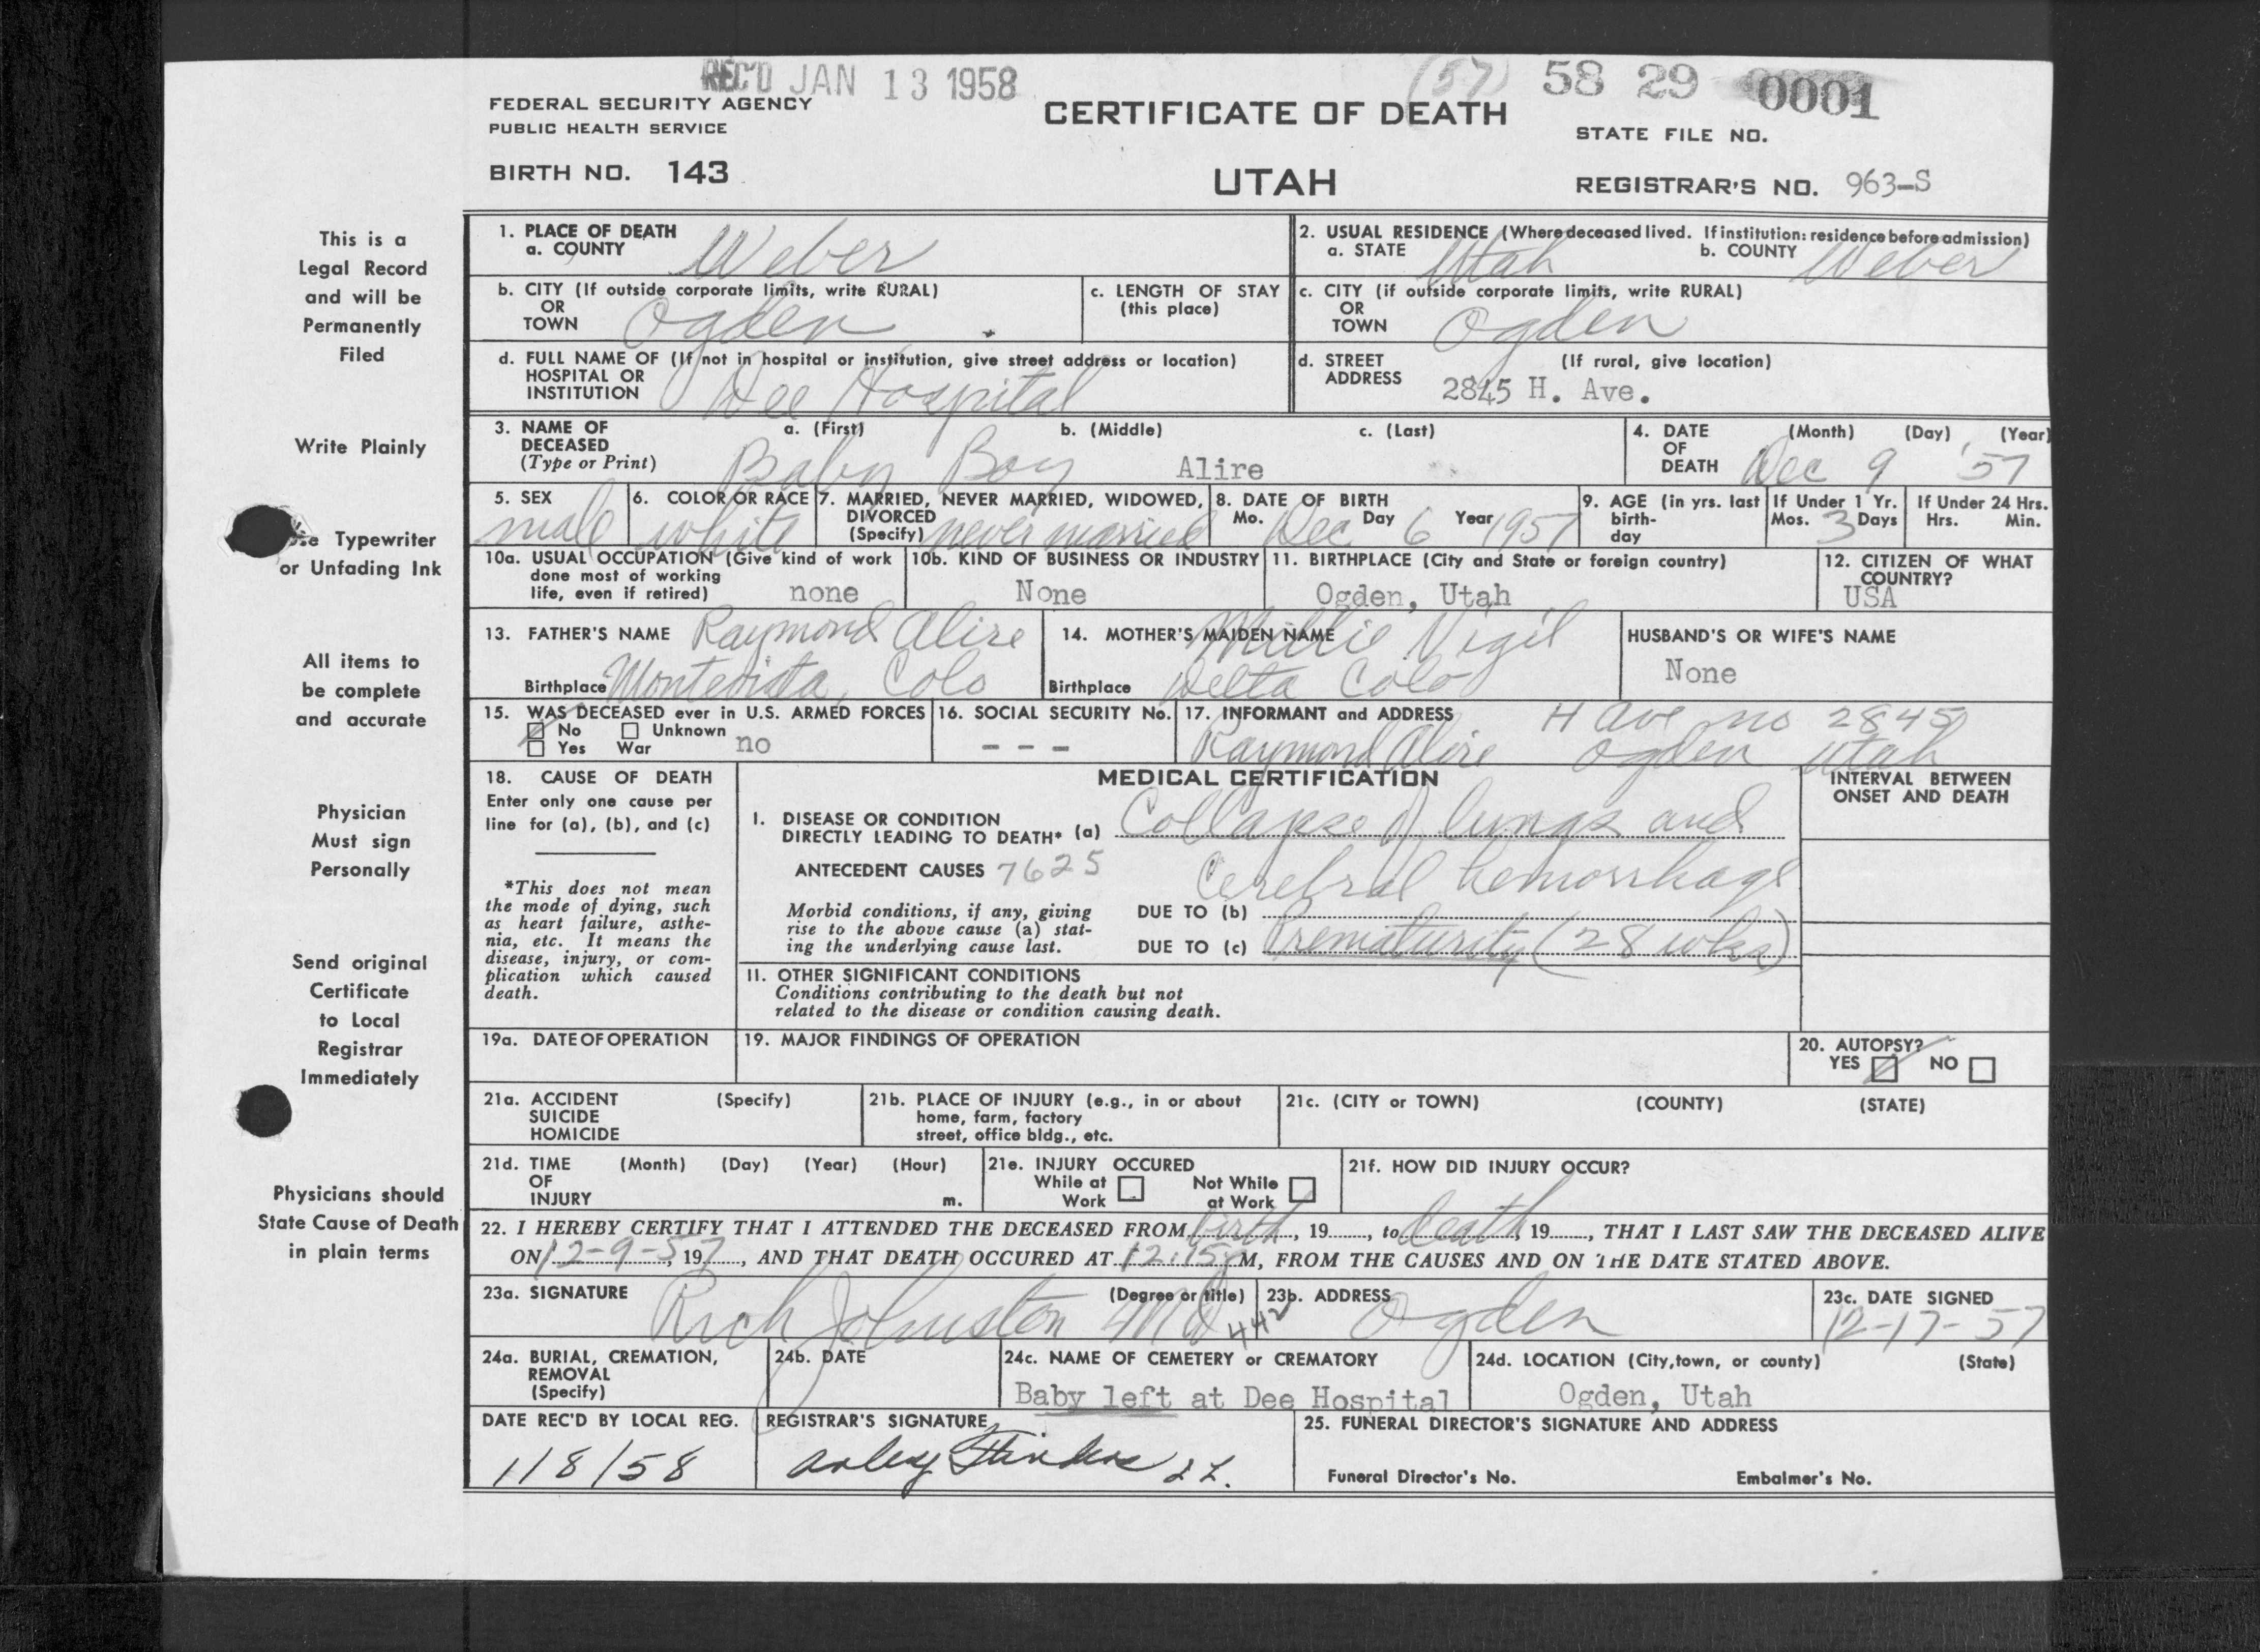 REC'D JAN 13 1958
(57) 58 29 0001
FEDERAL SECURITY AGENCY
PUBLIC HEALTH SERVICE
CERTIFICATE OF DEATH
STATE FILE NO.
BIRTH NO. 143
UTAH
REGISTRAR'S NO. 963-S
This is a
Legal Record
and will be
Permanently
Filed
Write Plainly
Typewriter
or Unfading Ink
All items to
be complete
and accurate
Physician
Must sign
Personally
Send original
Certificate
to Local
Registrar
Immediately
Physicians should
State Cause of Death
in plain terms
1. PLACE OF DEATH
a. COUNTY Weber
2. USUAL RESIDENCE (Where deceased lived. If institution: residence before admission)
a. STATE Utah b. COUNTY Weber
b. CITY (If outside corporate limits, write RURAL)
OR
TOWN Ogden
c. LENGTH OF STAY
(this place)
c. CITY (if outside corporate limits, write RURAL)
OR
TOWN Ogden
d. FULL NAME OF (If not in hospital or institution, give street address or location)
HOSPITAL OR
INSTITUTION Dee Hospital
d. STREET (If rural, give location)
ADDRESS 2845 H. Ave.
3. NAME OF a. (First) b. (Middle) c. (Last)
DECEASED
(Type or Print) Baby Boy Alire
4. DATE (Month) (Day) (Year)
OF
DEATH Dec 9 '57
5. SEX
male
6. COLOR OR RACE
white
7. MARRIED, NEVER MARRIED, WIDOWED,
DIVORCED
(Specify) never married
8. DATE OF BIRTH
Mo. Dec Day 6 Year 1957
9. AGE (in yrs. last
birth-
day
If Under 1 Yr.
Mos. 3 Days
If Under 24 Hrs.
Hrs. Min.
10a. USUAL OCCUPATION (Give kind of work
done most of working
life, even if retired) none
10b. KIND OF BUSINESS OR INDUSTRY
None
11. BIRTHPLACE (City and State or foreign country)
Ogden, Utah
12. CITIZEN OF WHAT
COUNTRY?
USA
13. FATHER'S NAME Raymond Alire
Birthplace Montevista, Colo
14. MOTHER'S MAIDEN NAME Millie Vigil
Birthplace Delta Colo
HUSBAND'S OR WIFE'S NAME
None
15. WAS DECEASED ever in U.S. ARMED FORCES
No Unknown
Yes War no
16. SOCIAL SECURITY No.
- - -
17. INFORMANT and ADDRESS H Ave no 2845
Raymond Alire Ogden Utah
18. CAUSE OF DEATH
Enter only one cause per
line for (a), (b), and (c)
*This does not mean
the mode of dying, such
as heart failure, asthe-
nia, etc. It means the
disease, injury, or com-
plication which caused
death.
MEDICAL CERTIFICATION
INTERVAL BETWEEN
ONSET AND DEATH
I. DISEASE OR CONDITION
DIRECTLY LEADING TO DEATH* (a) Collapse of lungs and
ANTECEDENT CAUSES 7625 Cerebral hemorrhage
Morbid conditions, if any, giving
rise to the above cause (a) stat-
ing the underlying cause last.
DUE TO (b)
DUE TO (c) Prematurity (28 wks)
II. OTHER SIGNIFICANT CONDITIONS
Conditions contributing to the death but not
related to the disease or condition causing death.
19a. DATE OF OPERATION
19. MAJOR FINDINGS OF OPERATION
20. AUTOPSY?
YES NO
21a. ACCIDENT (Specify)
SUICIDE
HOMICIDE
21b. PLACE OF INJURY (e.g., in or about
home, farm, factory
street, office bldg., etc.
21c. (CITY or TOWN) (COUNTY) (STATE)
21d. TIME (Month) (Day) (Year) (Hour)
OF
INJURY m.
21e. INJURY OCCURED
While at Not While
Work at Work
21f. HOW DID INJURY OCCUR?
22. I HEREBY CERTIFY THAT I ATTENDED THE DECEASED FROM birth, 19....., to death, 19....., THAT I LAST SAW THE DECEASED ALIVE
ON 12-9-57, 19....., AND THAT DEATH OCCURED AT 12:15 M, FROM THE CAUSES AND ON THE DATE STATED ABOVE.
23a. SIGNATURE (Degree or title)
Rich Johnston MD 442
23b. ADDRESS
Ogden
23c. DATE SIGNED
12-17-57
24a. BURIAL, CREMATION,
REMOVAL
(Specify)
24b. DATE
24c. NAME OF CEMETERY or CREMATORY
Baby left at Dee Hospital
24d. LOCATION (City, town, or county) (State)
Ogden, Utah
DATE REC'D BY LOCAL REG.
1/8/58
REGISTRAR'S SIGNATURE
25. FUNERAL DIRECTOR'S SIGNATURE AND ADDRESS
Funeral Director's No. Embalmer's No.